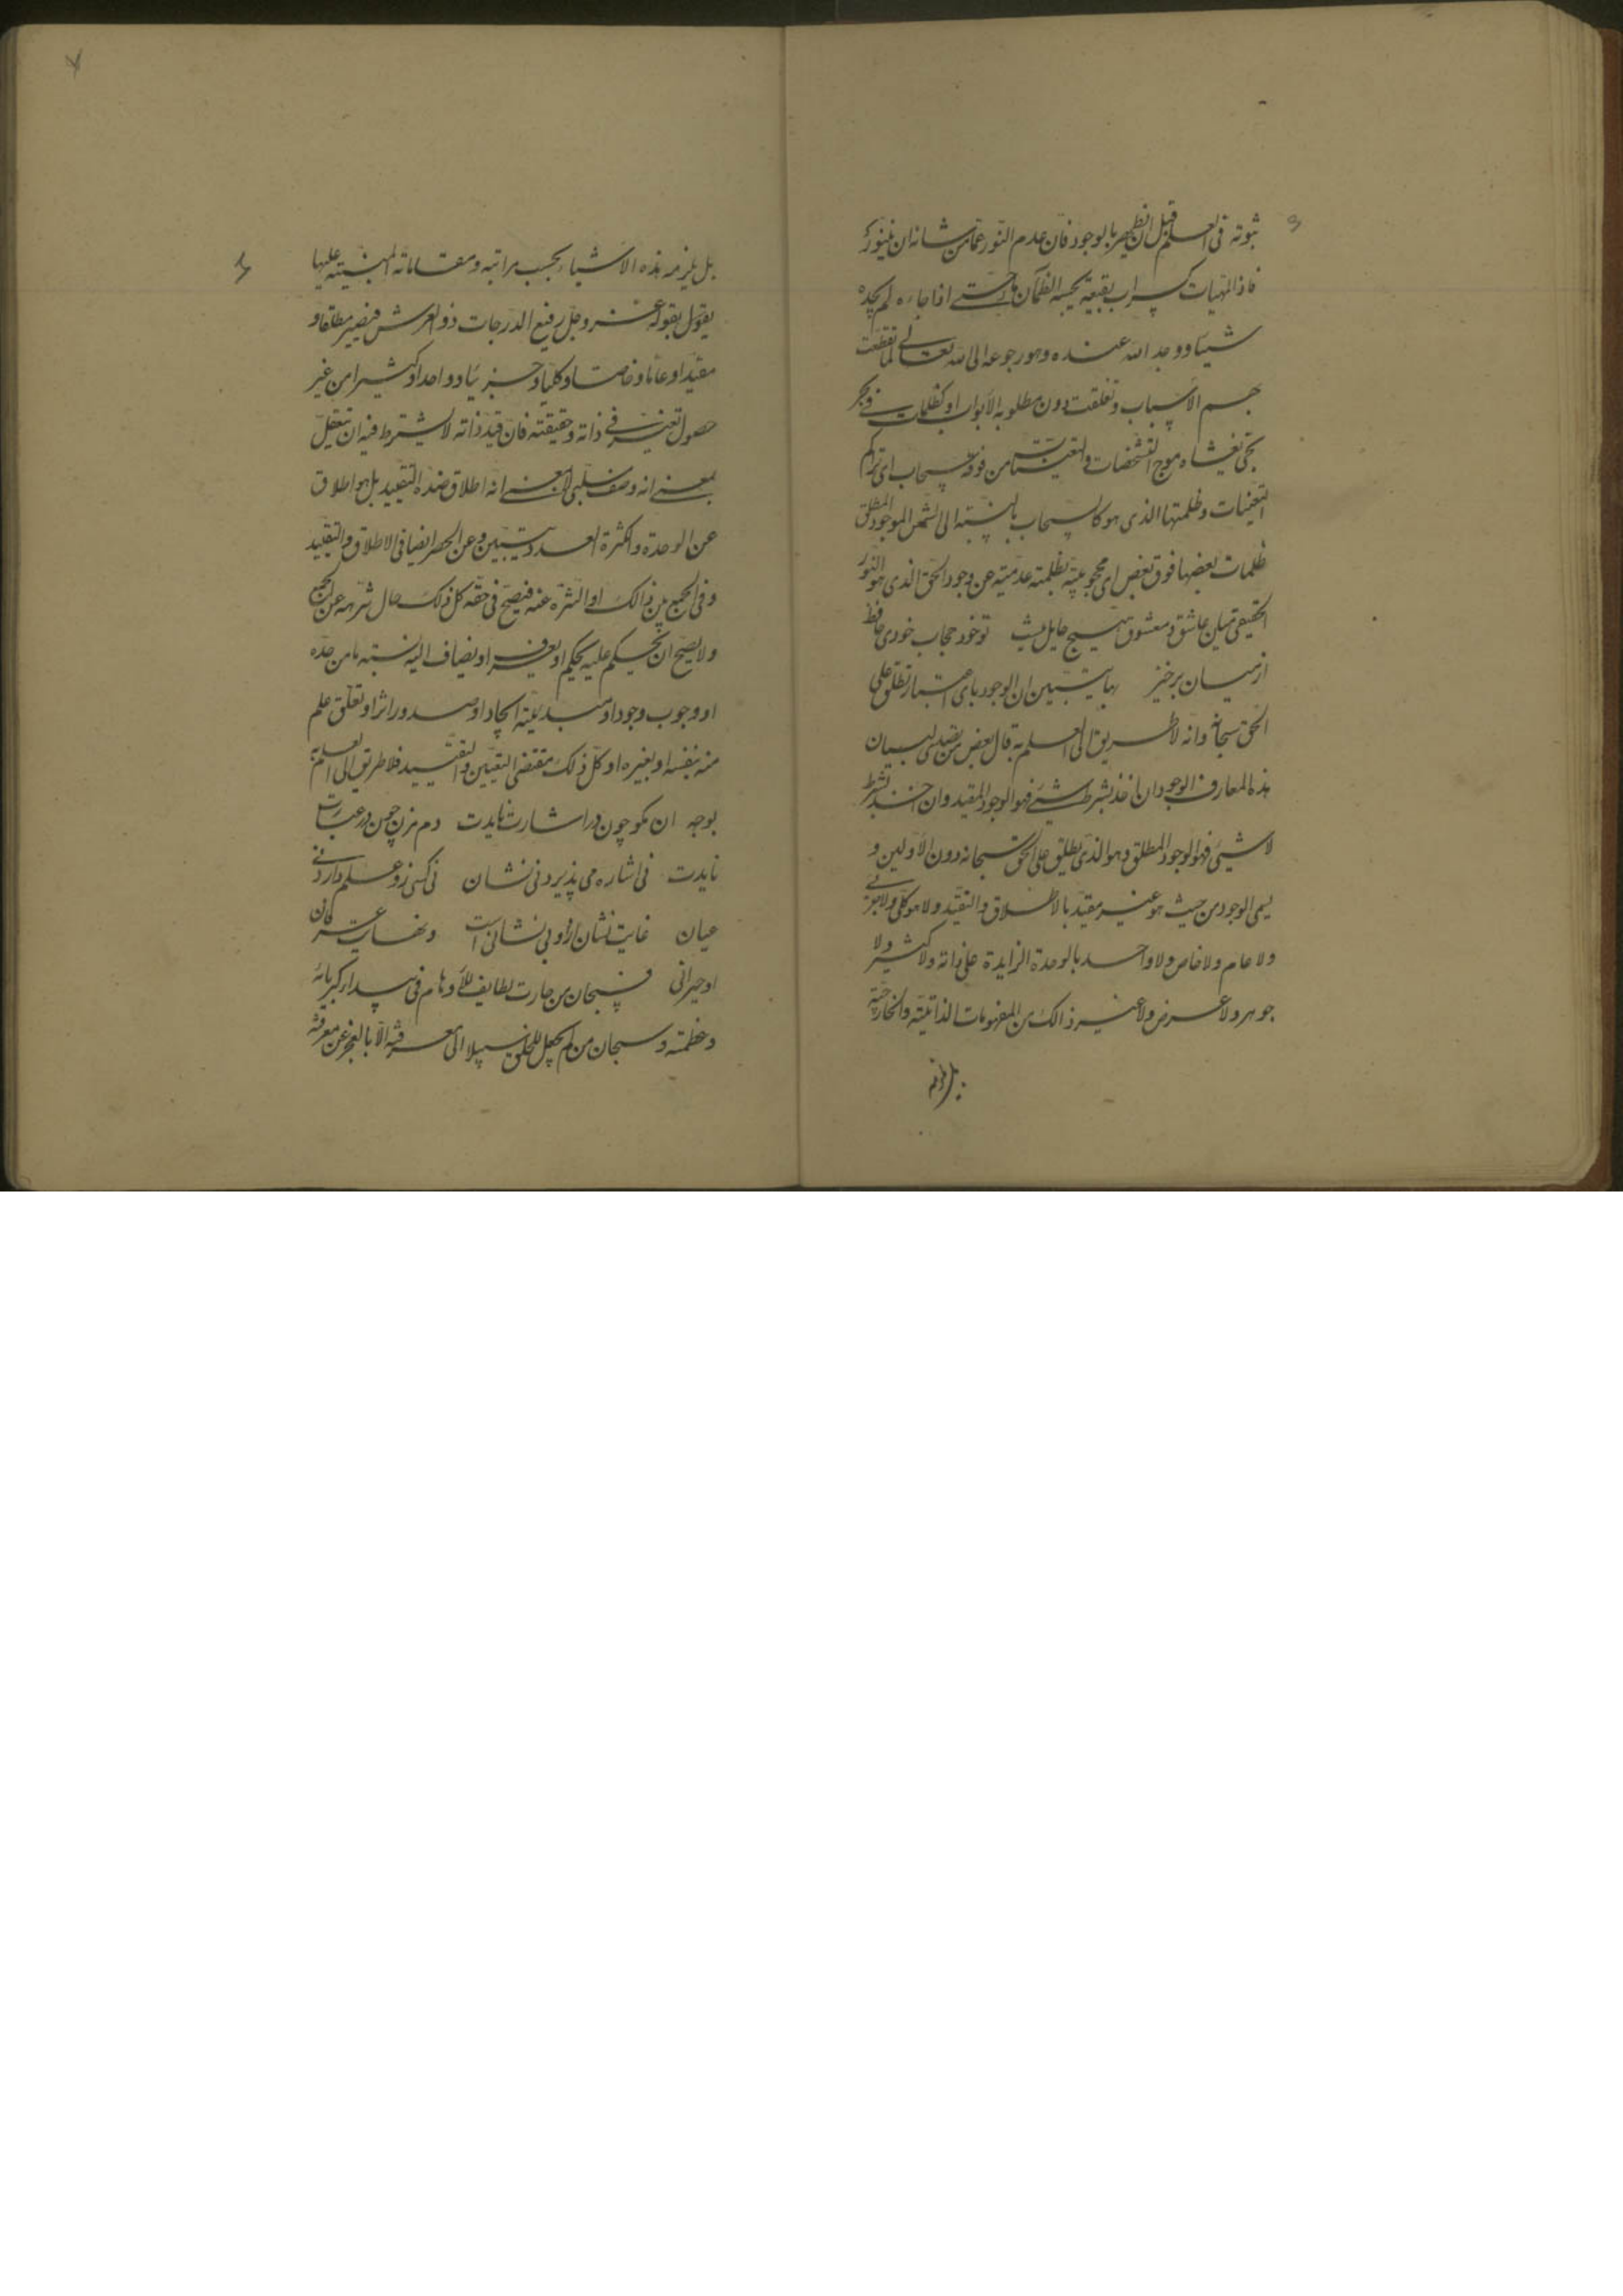 ثبوته فی العلم قبل ان یظهر بالوجود فان عدم النور عما من شانه ان یتنور
فاذا المهیات کسراب بقیعة یحسبه الظمآن ماء حتی اذا جاءه لم یجده
شیئا ووجد الله عنده وهو رجوعه الی الله تعالی لما تقطعت
بهم الاسباب وتغلقت دون مطلوبه الابواب او کظلمات فی بحر
لجی یغشاه موج التشخصات والتعینات من فوقه سحاب ای تراکم
التعینات وظلمتها الذی هو کالسحاب بالنسبة الی الشمس الموجود المطلق
ظلمات بعضها فوق بعض ای محجوبیته بظلمة عدمیته عن وجود الحق الذی هو النور
الحقیقی میان عاشق ومعشوق هیچ حایل نیست تو خود حجاب خودی حافظ
از میان برخیز بها یتبین ان الوجود بای اعتبار تطلق علی
الحق سبحانه وانه لا طریق الی العلم به قال بعض من تصدی لبیان
هذه المعارف الوجود ان اخذ بشرط شیئ فهو الوجود المقید وان اخذ بشرط
لا شیئ فهو الوجود المطلق وهو الذی یطلق علی الحق سبحانه دون الاولین و
یسمی الوجود من حیث هو غیر مقید بالاطلاق والتقید ولا هو کلی ولا جزئی
ولا عام ولا خاص ولا واحد بالوحدة الزایدة علی ذاته ولا کثیر ولا
جوهر ولا عرض ولا غیر ذالک من المفهومات الذاتیة والخارجیة
بل یلزمه
بل یلزمه هذه الاشیاء بحسب مراتبه ومقاماته المنبته علیها
بقوله عز وجل رفیع الدرجات ذو العرش فیصیر مطلقا و
مقیدا و عاما و خاصا و کلیا و جزئیا و واحدا و کثیرا من غیر
حصول تغیر فی ذاته وحقیقته فان قید ذاته لا یشترط فیه ان یتعقل
بمعنی انه وصف سلبی لا بمعنی انه اطلاق ضده التقیید بل هو اطلاق
عن الوحدة والکثرة العددیتین وعن الحصر ایضا فی الاطلاق والتقیید
وفی الجمع بین ذالک او التنزه عنه فیصح فی حقه کل ذلک حال تنزهه عن الجمیع
ولا یصح ان یحکم علیه بحکم او یعرف او یضاف الیه نسبة ما من حده
او وجوب وجود او مبدئیة ایجاد او صدور اثر او تعلق علم
منه بنفسه او بغیره اذ کل ذلک مقتضی التعین والتقیید فلا طریق الی العلم به
بوجه ان مگو چون در اشارت نایدت دم مزن چون در عبارت
نایدت نی اشاره می پذیرد نی نشان نی کسی زو علم دارد نی
عیان غایت نشان ازو بی نشانی است و نهایت عرفان
او حیرانی فسبحان من حارت لطایف الاوهام فی بیداء کبریائه
وعظمته وسبحان من لم یجعل للخلق سبیلا الی معرفته الا بالعجز عن معرفته